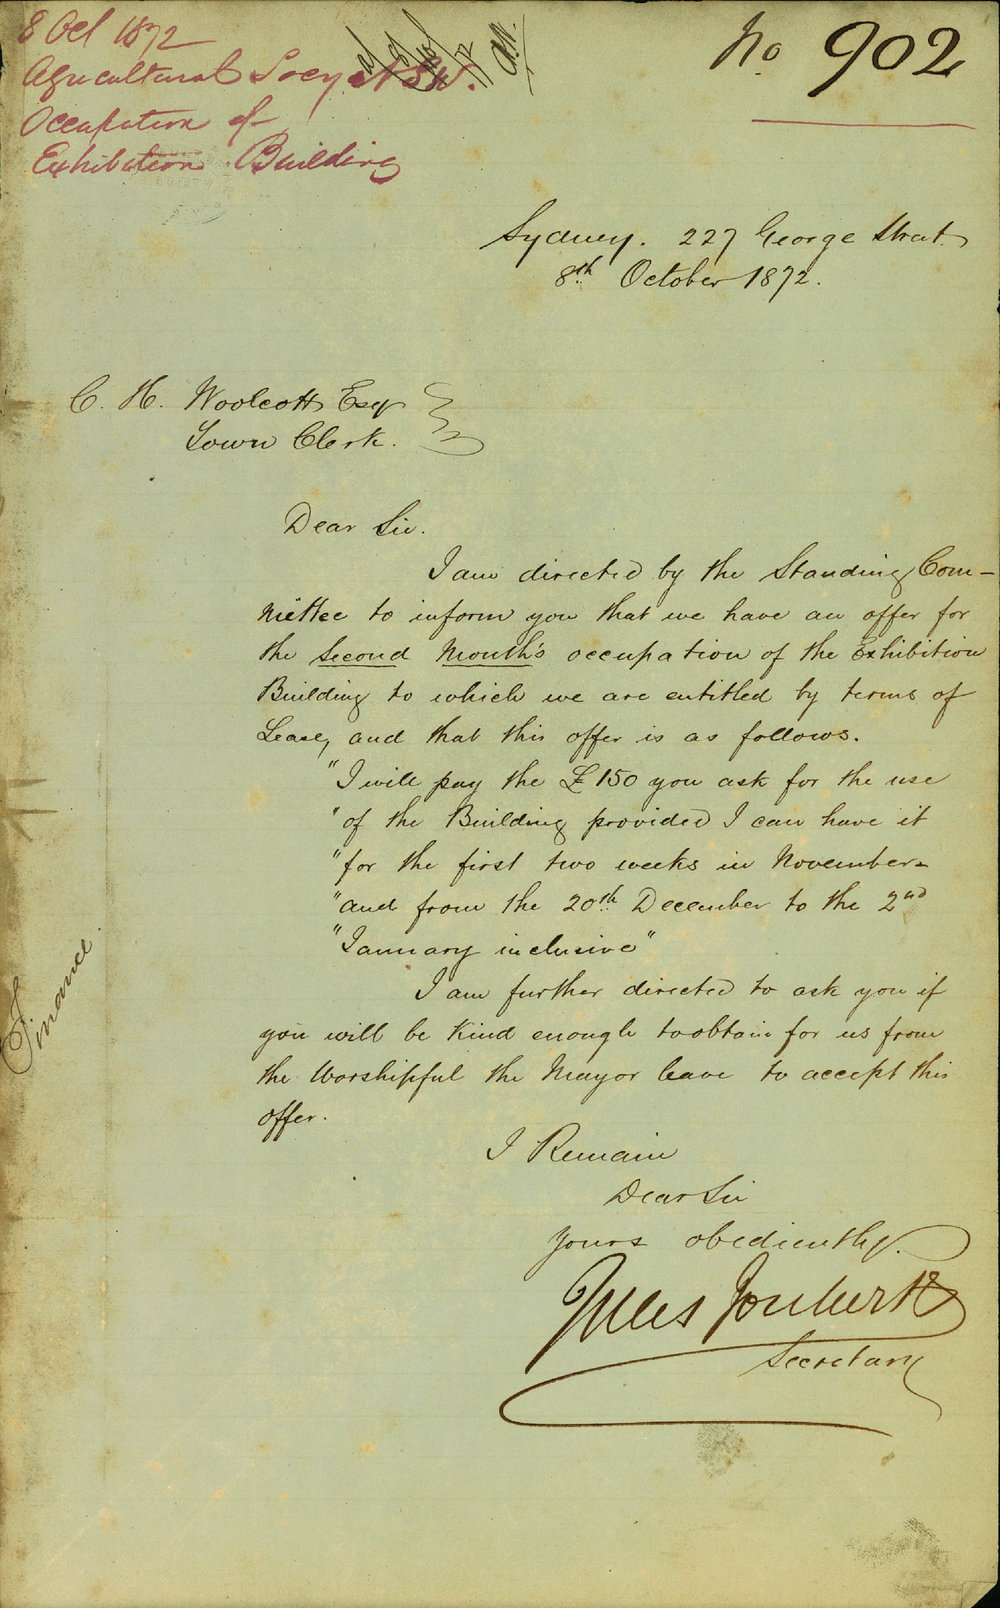 8 Oct 1872
Agricultural Socy N.S.W.
Occupation of
Exhibition Building
No 902
Sydney. 227 George Street
8th October 1872.
C. H. Woolcott Esqr
Town Clerk.
Dear Sir.
I am directed by the Standing Com-
mittee to inform you that we have an offer for
the Second Month's occupation of the Exhibition
Building to which we are entitled by terms of
Lease, and that this offer is as follows.
"I will pay the £150 you ask for the use
"of the Building provided I can have it
"for the first two weeks in November-
"and from the 20th December to the 2nd
"January inclusive"
I am further directed to ask you if
you will be kind enough to obtain for us from
the Worshipful the Mayor leave to accept this
offer.
I Remain
Dear Sir
Yours obediently.
Jules Joubert
Secretary
Finance.